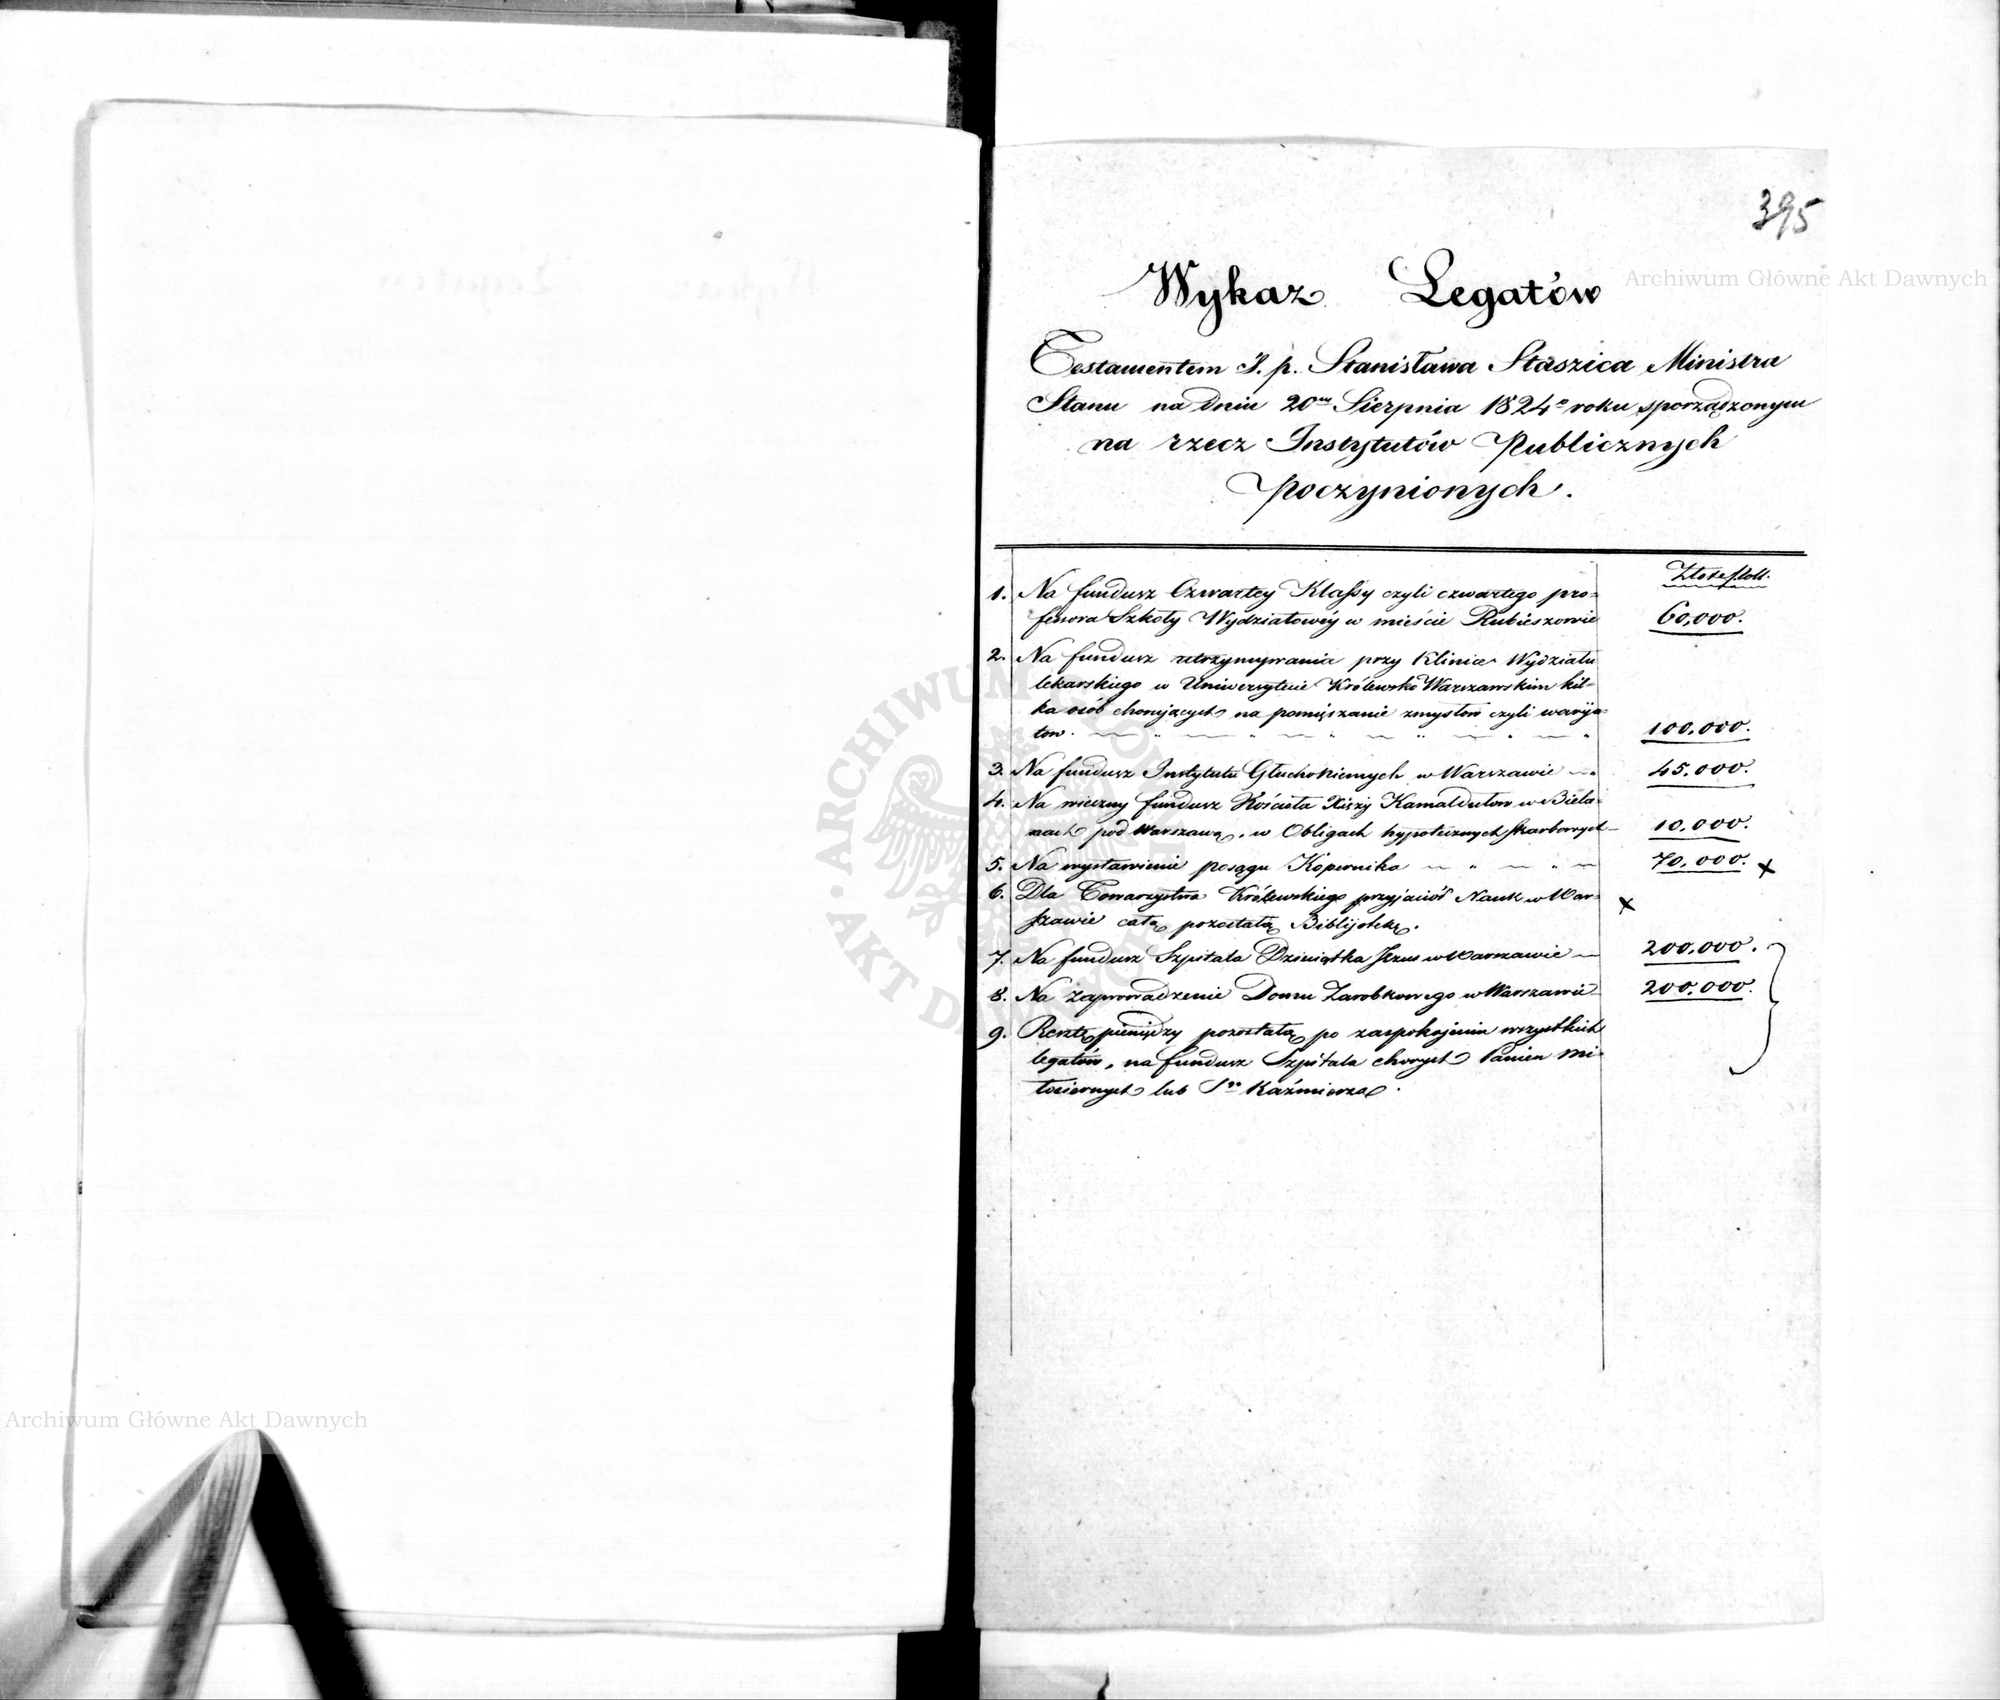 395
Wykaz Legatów
Testamentem ś. p. Stanisława Staszica Ministra
Stanu na dniu 20go Sierpnia 1824o roku sporządzonym
na rzecz Instytutów Publicznych
poczynionych.
Złote poll.
1. Na fundusz Czwartey Klassy czyli czwartego pro=
fessora Szkoły Wydziałowéy w mieście Rubieszowie 60,000.
2. Na fundusz utrzymywania przy Klinice Wydziału
lekarskiego w Uniwersytecie Królewsko Warszawskim kil=
ka osób chorujących na pomięszanie zmysłów czyli waryja=
tow. 100.000.
3. Na fundusz Instytutu Głuchoniemych w Warszawie 45.000.
4. Na wieczny fundusz Kościoła Xięży Kamaldułow w Biela=
nach pod Warszawą, w Obligach hypotecznych skarbowych 10.000.
5. Na wystawienie posągu Kopernika 70.000. x
6. Dla Towarzystwa Królewskiego przyjaciół Nauk w War=
szawie całą pozostałą Biblijotekę. x
7. Na fundusz Szpitala Dzieciątka Jezus w Warszawie 200.000.
8. Na zaprowadzenie Domu Zarobkowego w Warszawie 200.000.
9. Resztę pieniędzy pozostałą po zaspokojeniu wszystkich
legatów, na fundusz Szpitala chorych Panien Mi=
łosiernych lub Sgo Kaźmierza.
Archiwum Główne Akt Dawnych
Archiwum Główne Akt Dawnych
ARCHIWUM GŁÓWNE AKT DAWNYCH